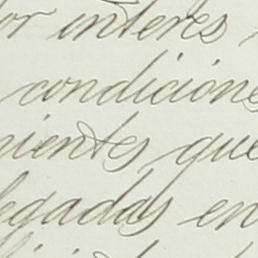 or interes
condicione
nientes que
legadas en